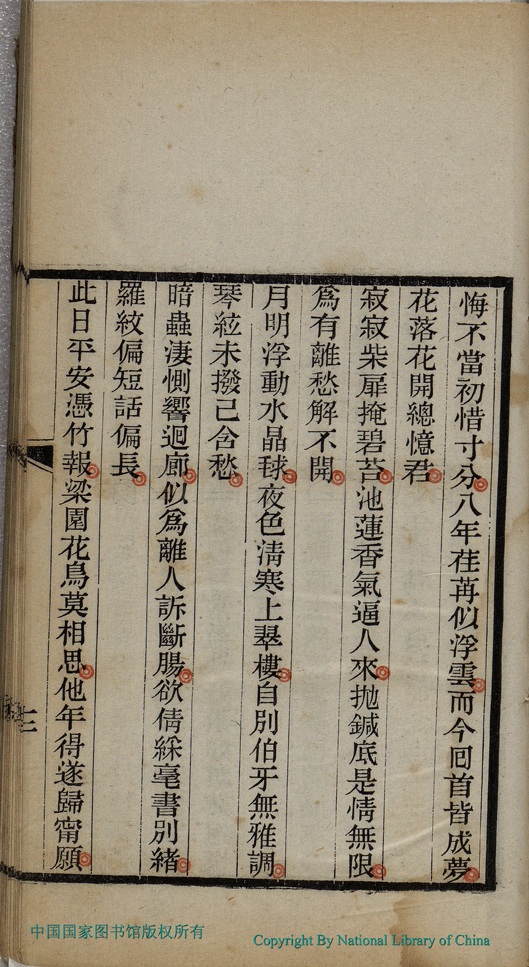 悔不當初惜寸分八年荏苒似浮雲而今回首皆成夢
花落花開總憶君
寂寂柴扉掩碧苔池蓮香氣逼人來抛鍼底是情無限
爲有離愁解不開
月明浮動水晶毬夜色淸寒上翠樓自別伯牙無雅調
琴絃未撥已含愁
暗蟲淒惻響迴廊似爲離人訴斷腸欲倩綵毫書別緒
羅紋偏短話偏長
此日平安憑竹報梁園花鳥莫相思他年得遂歸甯願
十二
中国国家图书馆版权所有
Copyright By National Library of China